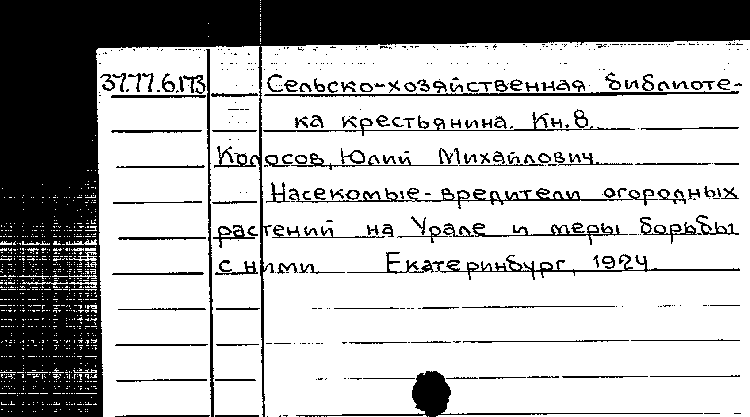 37.77.6.173 Сельско-хозяйственная библиоте-
ка крестьянина. Кн.8.
Колосов, Юлий Михайлович.
Насекомые-вредители огородных
растений на Урале и меры борьбы
с ними. Екатеринбург, 1924.